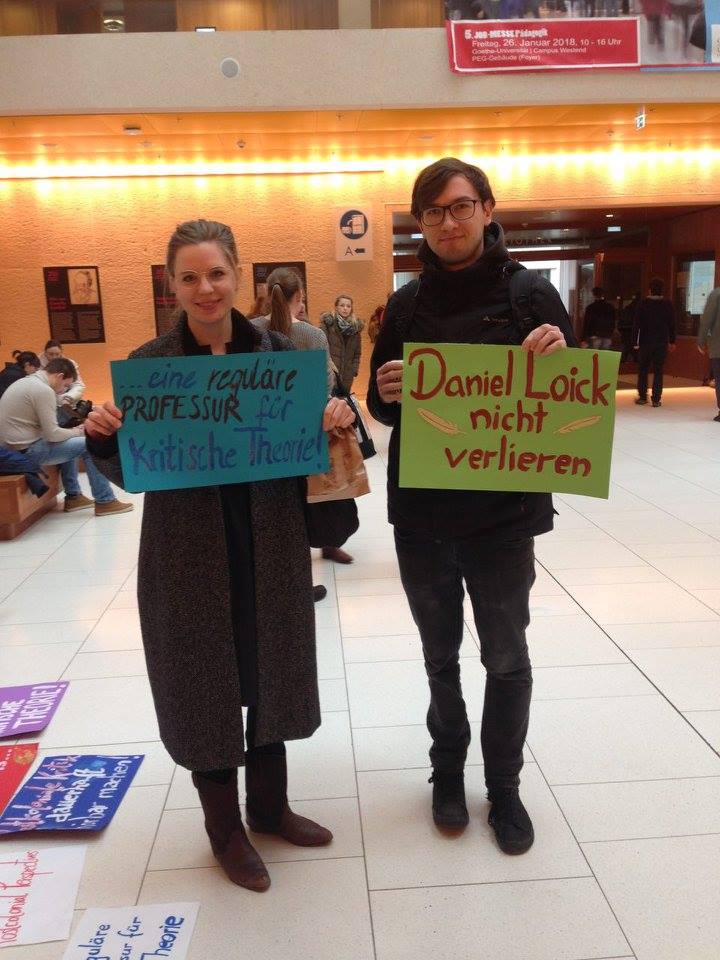 5. JOB-MESSE Pädagogik
Freitag, 26. Januar 2018, 10 - 16 Uhr
Goethe-Universität | Campus Westend
PEG-Gebäude (Foyer)
A
...eine reguläre
PROFESSUR für
Kritische Theorie!
Daniel Loick
nicht
verlieren
THEORIE!
dauerhaft
machen!
Postcolonial Perspectives
für
Theorie